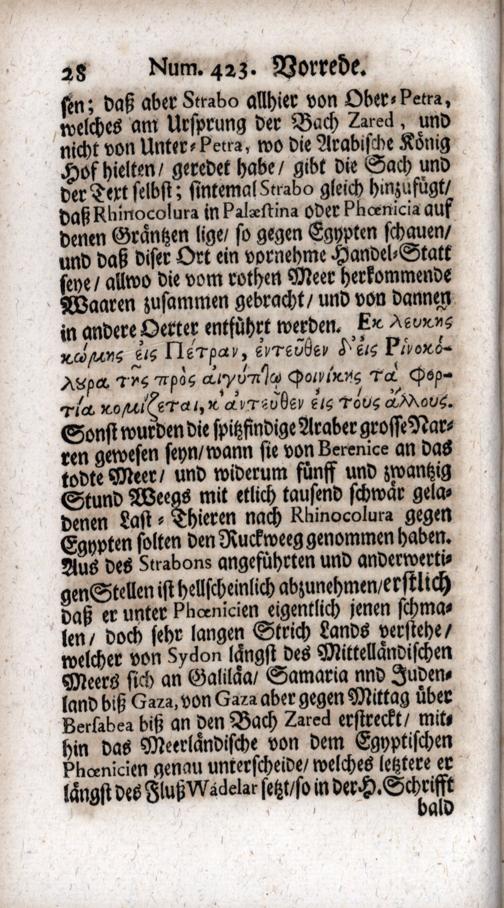 28 Num. 423. Vorrede.
sen; daß aber Strabo allhier von Ober-Petra,
welches am Ursprung der Bach Zared, und
nicht von Unter-Petra, wo die Arabische König
Hof hielten/ geredet habe/ gibt die Sach und
der Text selbst; sintemal Strabo gleich hinzufügt/
daß Rhinocolura in Palæstina oder Phœnicia auf
denen Gräntzen lige/ so gegen Egypten schauen/
und daß diser Ort ein vornehme Handel-Statt
seye/ allwo die vom rothen Meer herkommende
Waaren zusammen gebracht/ und von dannen
in andere Oerter entführt werden. Εκ λευκῆς
κώμης ἐις Πέτραν, ἐντεῦθεν δ'ἐις Ρινοκό-
λυρα τῆς πρὸς αιγύπτῳ φοινίκης τὰ φορ-
τία κομίζεται, κἀντεῦθεν ἐις τοὺς ἄλλους.
Sonst wurden die spitzfindige Araber grosse Nar-
ren gewesen seyn/ wann sie von Berenice an das
todte Meer/ und widerum fünff und zwantzig
Stund Weegs mit etlich tausend schwär gela-
denen Last-Thieren nach Rhinocolura gegen
Egypten solten den Ruckweeg genommen haben.
Aus des Strabons angeführten und anderwerti-
gen Stellen ist hellscheinlich abzunehmen/ erstlich
daß er unter Phœnicien eigentlich jenen schma-
len/ doch sehr langen Strich Lands verstehe/
welcher von Sydon längst des Mittelländischen
Meers sich an Galiläa/ Samaria nnd Juden-
land biß Gaza, von Gaza aber gegen Mittag über
Bersabea biß an den Bach Zared erstreckt/ mit-
hin das Meerländische von dem Egyptischen
Phœnicien genau unterscheide/ welches letztere er
längst des Fluß Wádelar setzt/ so in der H. Schrifft
bald